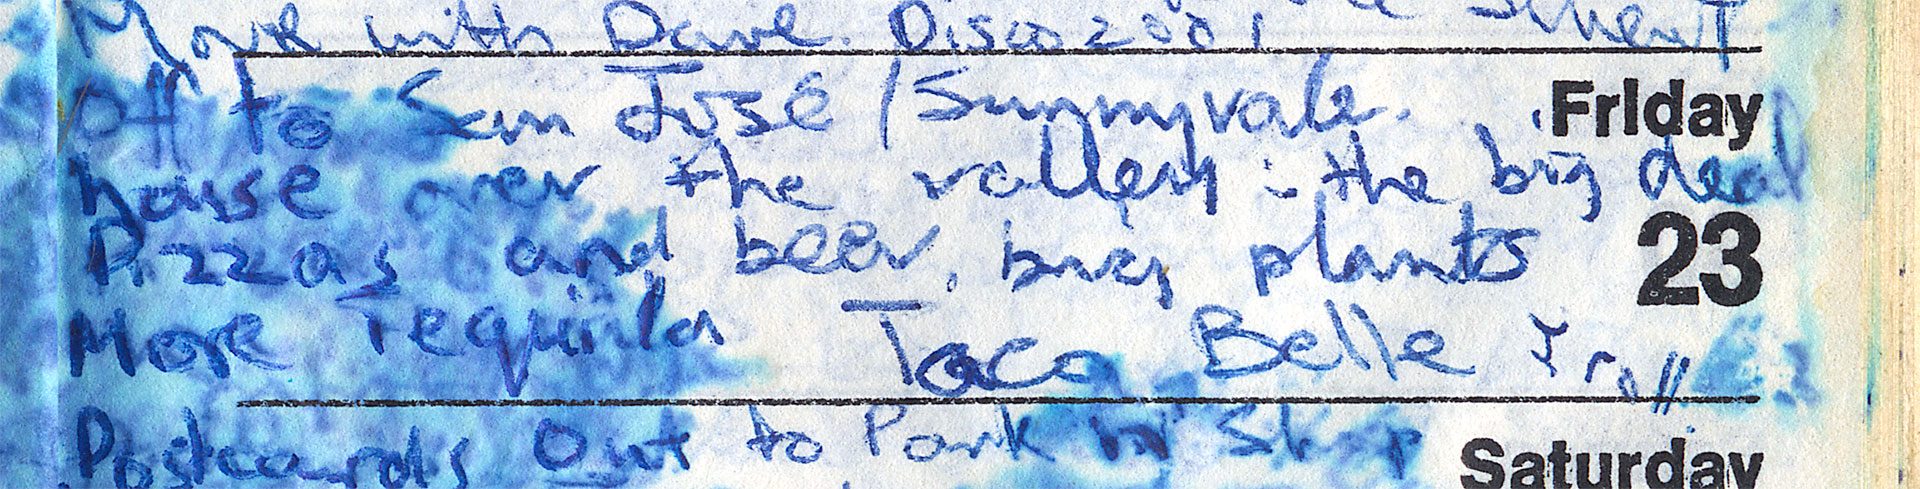 Mark with Dave. Disco 2001
Off to San José / Sunnyvale.
Friday
house over the valley : the big deal
Pizzas and beer, buy plants
23
More Tequila Taco Belle
Postcards Out to Park n' Shop
Saturday